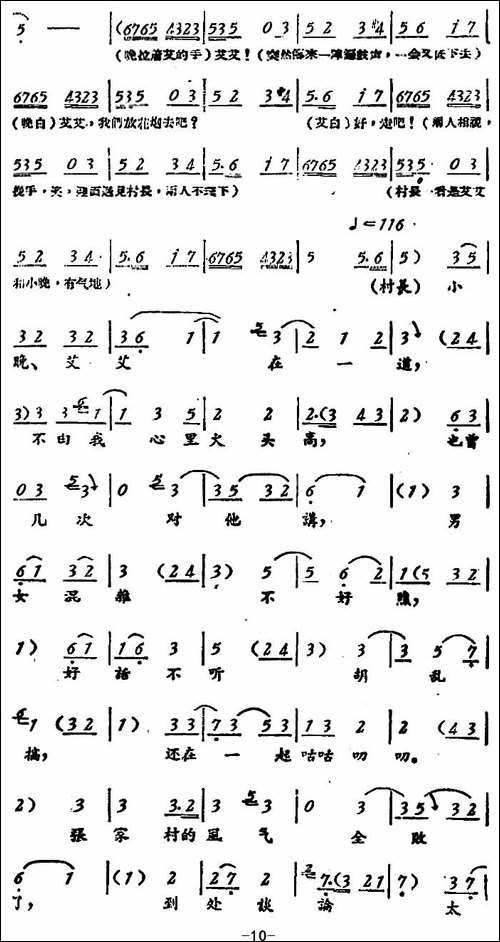 5 — — | (6765 4323 | 535 0 3 | 5 2 3 4 | 5 6 i 7 |
(晚拉着艾的手)艾艾!(突然傳来一陣鑼鼓声,一会又低下去)
6765 4323 | 535 0 3 | 5 2 3 4 | 5.6 i 7 | 6765 4323 |
(晚白)艾艾,我們放花炮去吧? (艾白)好,走吧!(兩人相視,
535 0 3 | 5 2 3 4 | 5.6 i 7 | 6765 4323 | 535. 0 3 |
挽手,笑,迎面遇見村長,兩人不理下) (村長一看是艾艾
♩=116
5 2 3 4 | 5.6 i 7 | 6765 4323 | 5 5.6 | 5) 3 5 |
和小晚,有气地) (村長) 小
3 2 3 2 | 3 6 1 | 1 3 | 2 1 2 | 3 (2 4 |
晚、艾艾 在一道,
3) 3 3 1 | 1 3 5 | 2 2 | 2.(3 4 3 | 2) 6 3 |
不由我心里火头高, 也曾
0 3 3 | 0 3 | 3 5 3 2 | 6 1 | (1) 3 |
几次对他講, 男
6 1 3 2 | 3 (2 4 | 3) 5 | 5 6 2 | 1 (5 3 2 |
女混雜不好瞧,
1) 6 1 | 1 6 3 | 5 (2 4 | 3) 3 | 3 5 7 |
好話不听 胡乱
1 (3 2 | 1) 3 3 | 7 3 5 3 | 1 3 2 | 2 (4 3 |
搞, 还在一起咕咕叨叨。
2) 3 | 3 3.2 | 3 3 | 0 3 | 3 5 3 2 |
張家村的風气全敗
6 1 | (1) 2 | 2 7 2 | 7.(3 2 1 | 7) 3 7 |
了, 到处談論 太
-10-